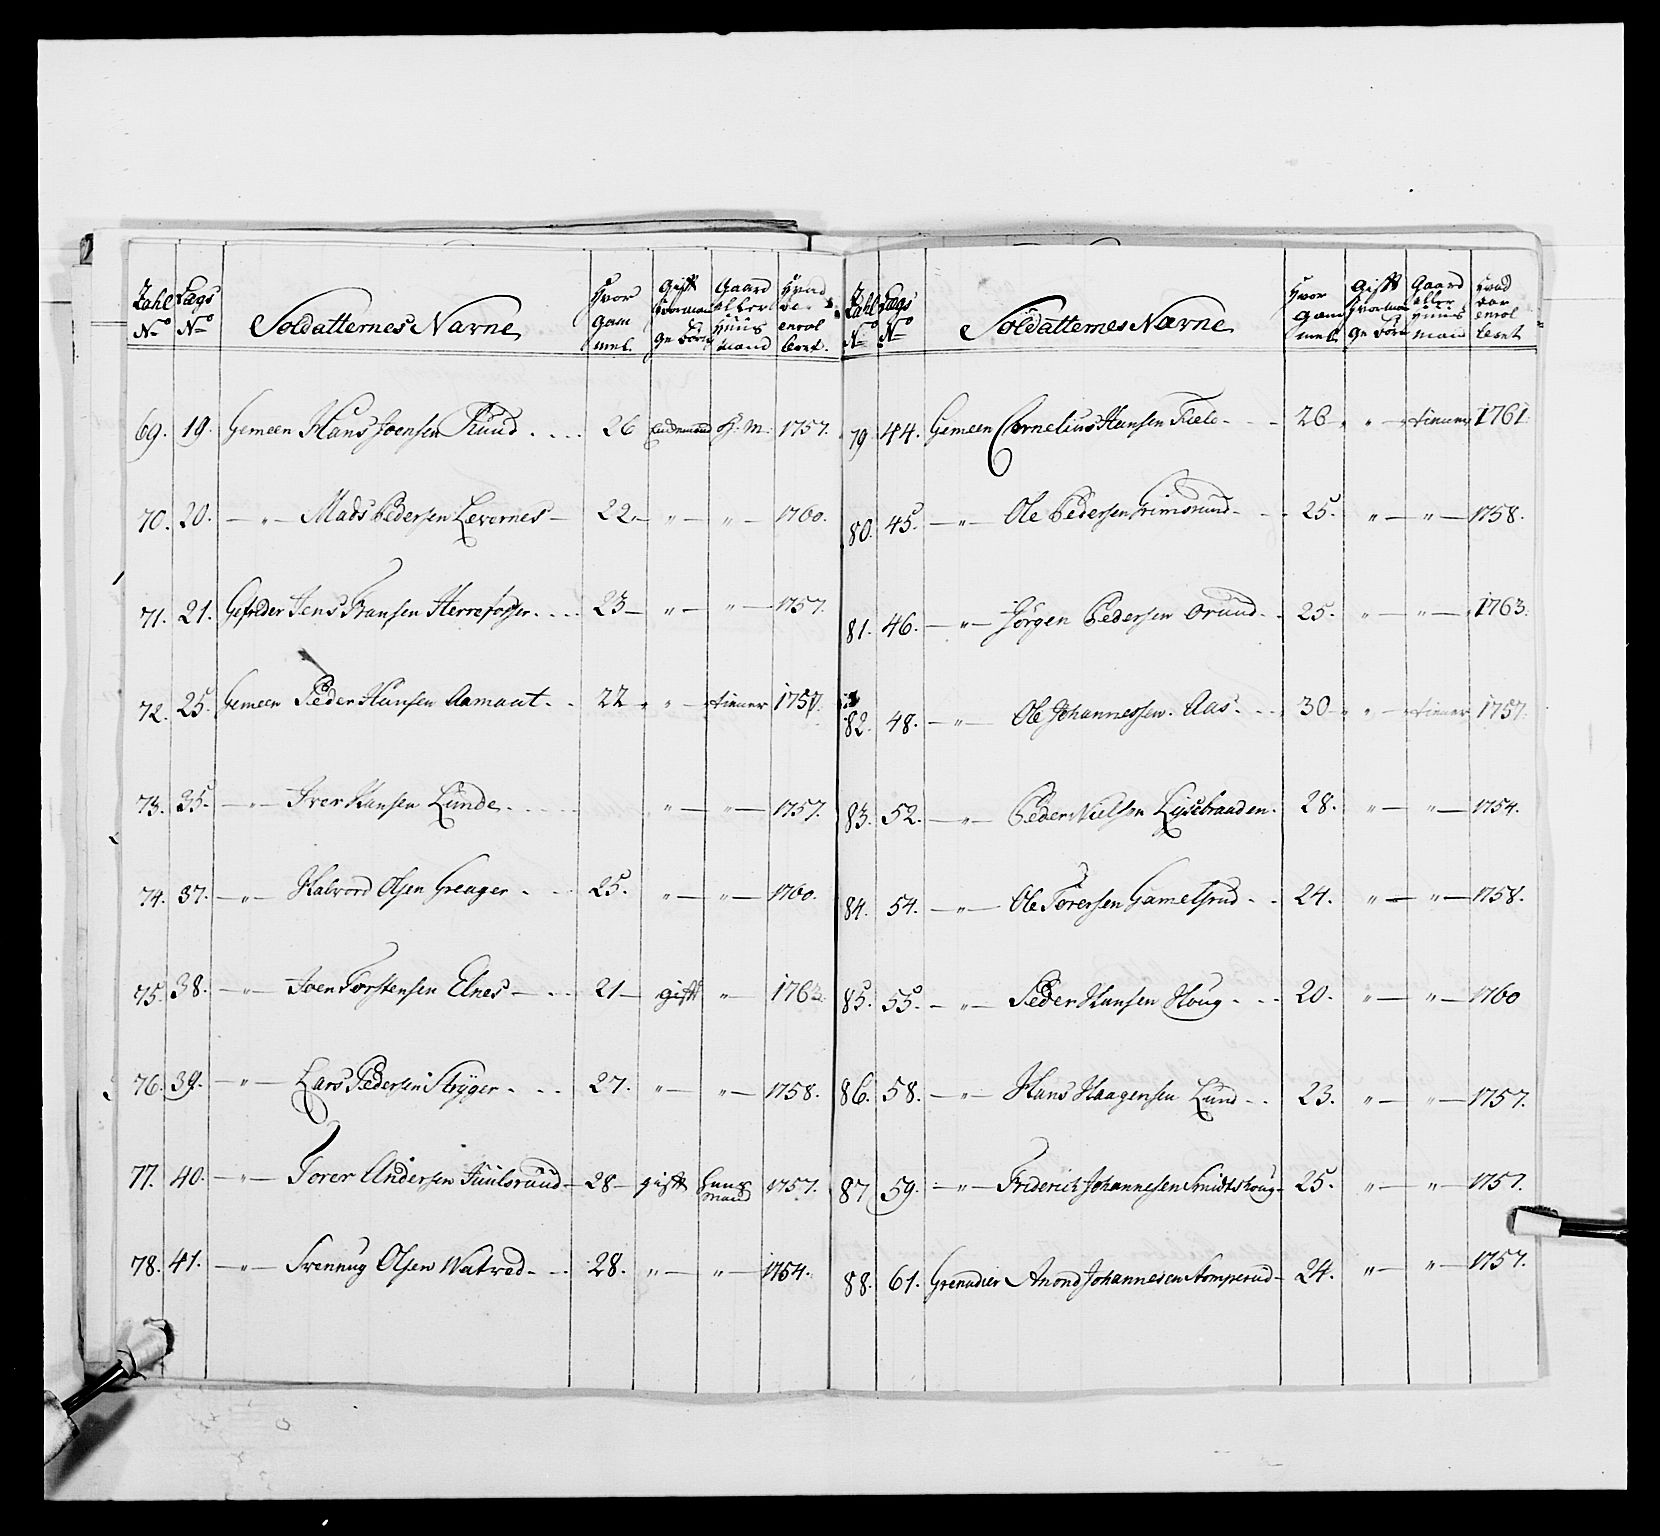 Zahl No Lægs No Soldatternes Navne Hvor Gam mel. Gift Hvorman ge Børn Gaard eller Huus mand Hvad enrol leret.
69. 19. Gemeen Hans Joensen Ruud 26 H: M: 1757.
70. 20. — " — Mads Pedersen Levernes — 22 — " — " — 1760.
71. 21. Gefrider Jens Fransen Herrefosser 23 — " — " — 1757.
72. 25. Gemeen Peder Hansen Aamaat 22 " — tiener 1757.
73. 35. — " — Iver Hansen Lunde " — " — 1757.
74. 37. — " — Halvord Olsen Grenger 25. " — " — 1760.
75. 38. — " — Joen Torstensen Elnes — 21 — gift " — 1763.
76. 39. — " — Lars Pedersen Stryger 27. " — " — 1758.
77. 40. — " — Torer Andersen Juulsruud — 28 — gift Huus mand 1757.
78. 41. — " — Svennug Olsen Watved 28. " — " — 1754.
Zahl No Lægs No Soldatternes Navne Hvor Gam mel Gift Hvorman ge Børn Gaard eller Huus man Hvad Aar enrol leret
79. 44. Gemeen Cornelius Hansen Fiele 26 " — tiener 1761.
80. 45. — " — Ole Pedersen Grimsruud 25. " — " — 1758.
81. 46. — " — Jørgen Pedersen Bruud 25. " — " — 1763.
82. 48. — " — Ole Johannessen Aas 30 " — tiener 1757.
83. 52. — " — Peder Nielsen Lysebraaden. 28. " — " — 1754.
84. 54. — " — Ole Torersen Gamelsrud 24. " — " — 1758.
85. 55. — " — Peder Hansen Houg 20. " — " — 1760
86. 58. — " — Hans Haagensen Lund 23. " — " — 1757.
87 59. — " — Friderich Johannesen Smidtshoug 25. " — " — 1757.
88. 61. Grenadier Anond Johannesen Stomperud — 24. " — " — 1757.